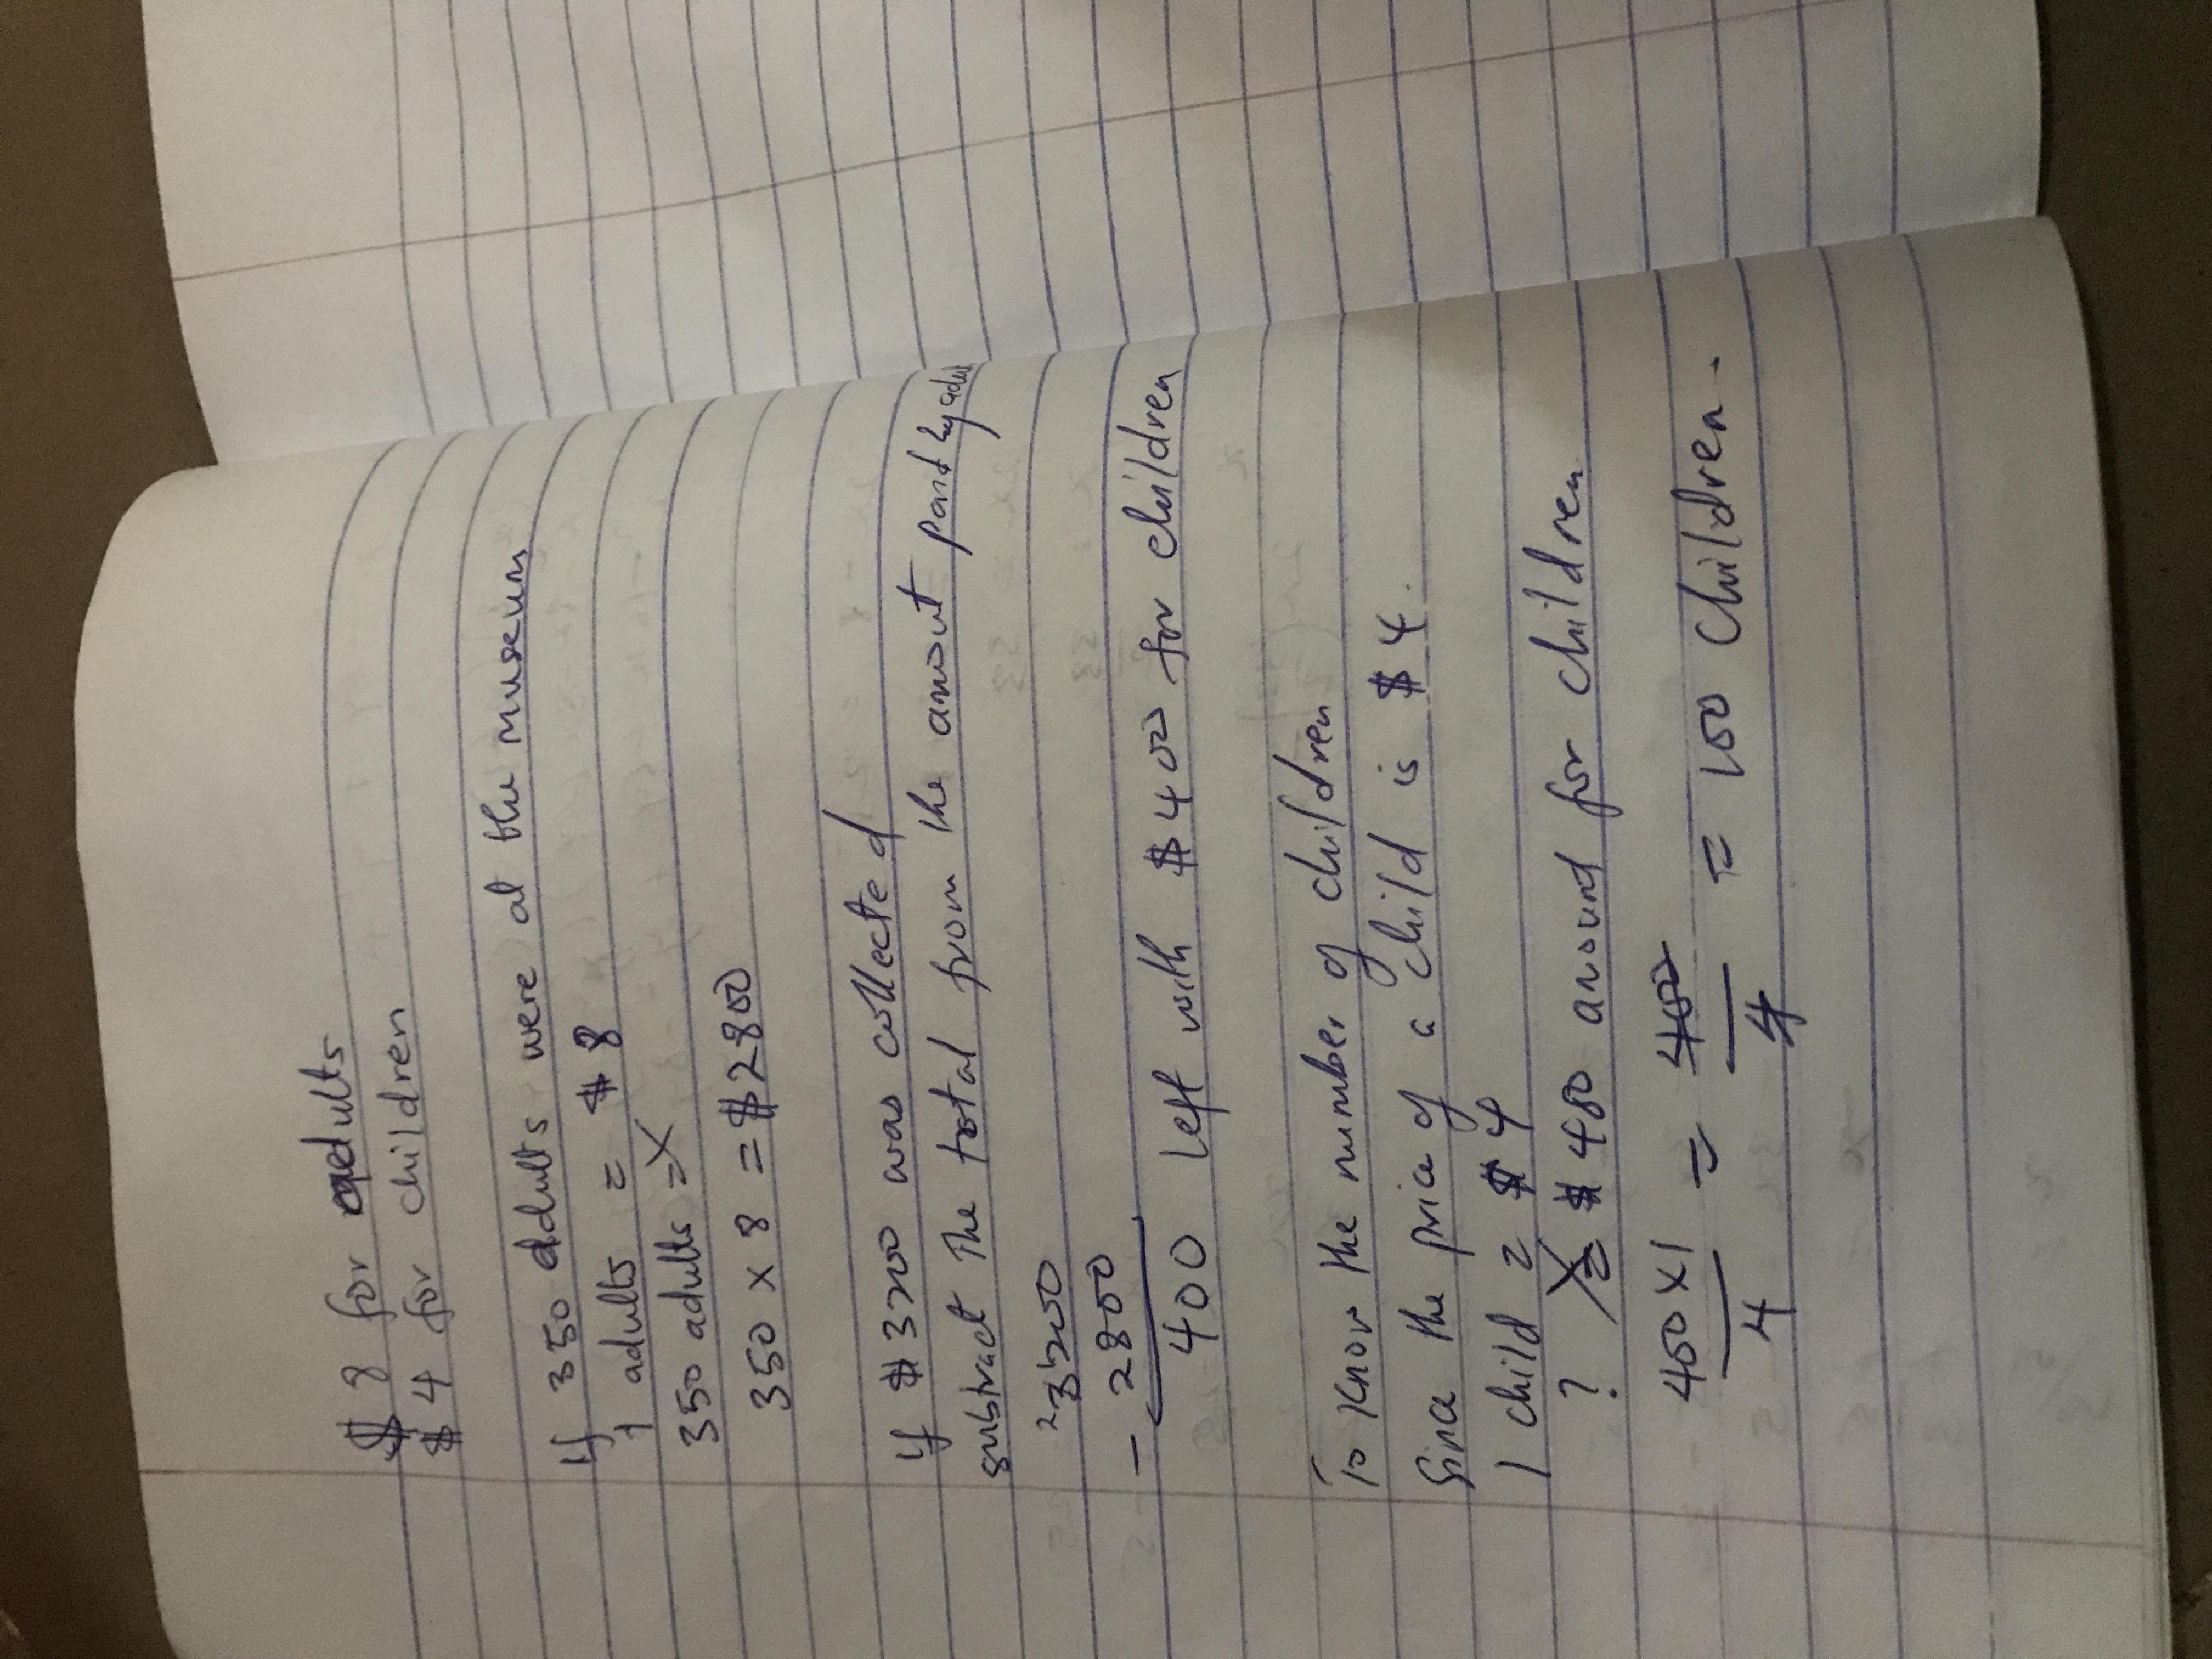 $ 8 for adults
$ 4 for children
If 350 adults were at the museum
1 adults = $ 8
350 adults = X
350 x 8 = $2800
If $ 3200 was collected
substract The total from the amout paid by adut
3200
- 2800
400 left with $ 400 for children
To know the number of children
Since the price of a child is $ 4.
1 child = $ 4
? X = $ 400 amount for children
400 x 1 / 4 = 400 / 4 = 100 children.